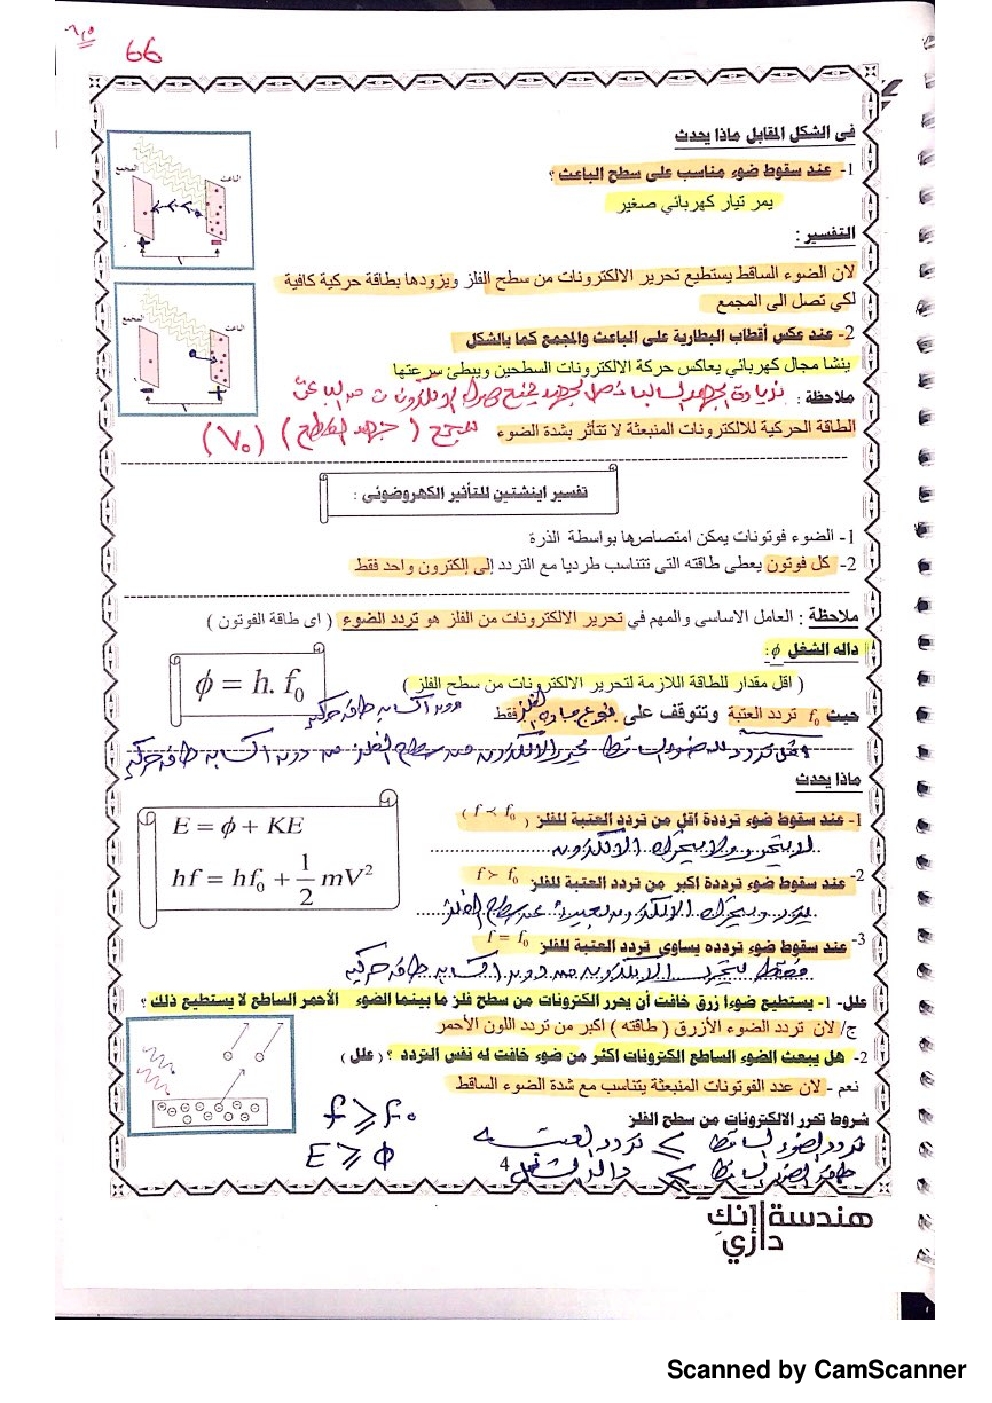 66
في الشكل المقابل ماذا يحدث
1- عند سقوط ضوء مناسب على سطح الباعث ؟
يمر تيار كهربائي صغير
التفسير :
لان الضوء الساقط يستطيع تحرير الالكترونات من سطح الفلز ويزودها بطاقة حركية كافية
لكي تصل الى المجمع
المجمع
الباعث
2- عند عكس أقطاب البطارية على الباعث والمجمع كما بالشكل
ينشا مجال كهربائي يعاكس حركة الالكترونات السطحين ويبطئ سرعتها
المجمع
الباعث
ملاحظة : زيادة الجهد السالب تصل لجهد يمنع الالكترونات من الباعث
الطاقة الحركية للالكترونات المنبعثة لا تتأثر بشدة الضوء للمجمع ( جهد القطع ) (V₀)
تفسير اينشتين للتأثير الكهروضوئي :
1- الضوء فوتونات يمكن امتصاصها بواسطة الذرة
2- كل فوتون يعطى طاقته التى تتناسب طرديا مع التردد إلى إلكترون واحد فقط
ملاحظة : العامل الاساسي والمهم في تحرير الالكترونات من الفلز هو تردد الضوء ( اى طاقة الفوتون )
داله الشغل ϕ:
( اقل مقدار للطاقة اللازمة لتحرير الالكترونات من سطح الفلز )
ϕ = h. f₀
حيث f₀ تردد العتبة وتتوقف على نوع مادة الفلز فقط
دون اكسابه طاقة حركية
اقل تردد للضوء الساقط يحرر الالكترون من سطح الفلز من دون اكسابه طاقة حركية
ماذا يحدث
1- عند سقوط ضوء ترددة اقل من تردد العتبة للفلز ( f < f₀ )
لا يتحرر ولا يتحرك الالكترون
E = ϕ + KE
hf = hf₀ + 1/2 mV²
2- عند سقوط ضوء ترددة اكبر من تردد العتبة للفلز f > f₀
يتحرر ويتحرك الالكترون بعيداً عن سطح الفلز
3- عند سقوط ضوء تردده يساوى تردد العتبة للفلز f = f₀
فقط يتحرر الالكترون من دون اكسابه طاقة حركية
علل- 1- يستطيع ضوءا زرق خافت أن يحرر الكترونات من سطح فلز ما بينما الضوء الأحمر الساطع لا يستطيع ذلك ؟
ج/ لان تردد الضوء الأزرق ( طاقته ) اكبر من تردد اللون الأحمر
2- هل يبعث الضوء الساطع الكترونات اكثر من ضوء خافت له نفس التردد ؟ ( علل )
نعم - لان عدد الفوتونات المنبعثة يتناسب مع شدة الضوء الساقط
شروط تحرر الالكترونات من سطح الفلز
تردد الضوء الساقط ≥ تردد العتبة
f ⩾ f₀
طاقة الضوء الساقط ≥ دالة الشغل
E ⩾ ϕ
4
هندسة إنك
دازي
Scanned by CamScanner